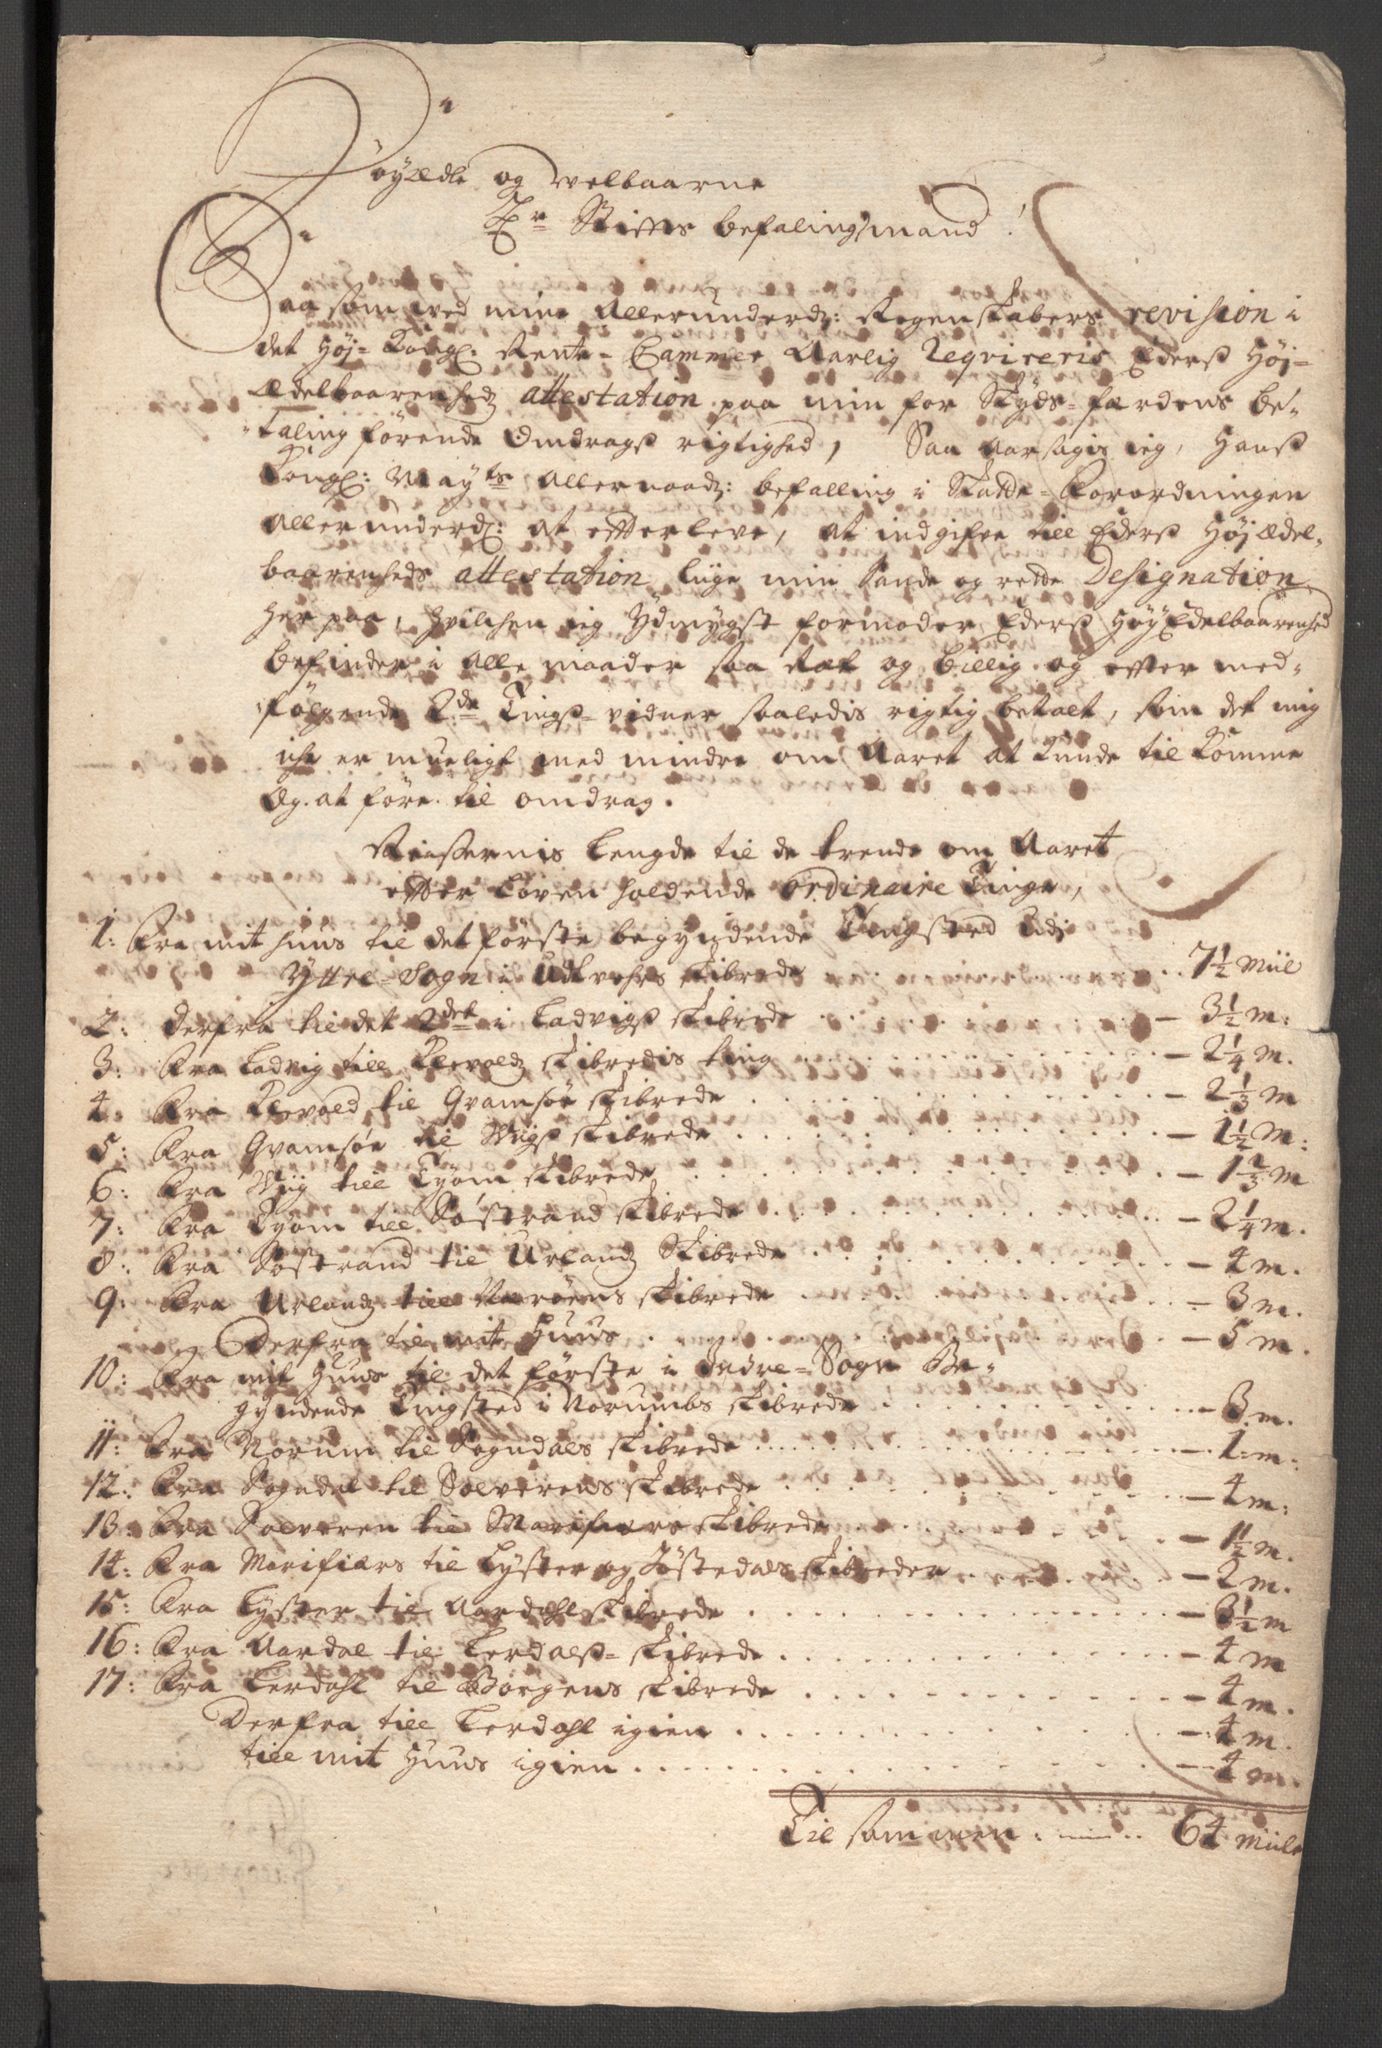 Høyædle og velbaarne
Hr Stifts befalingsmand!
Saasom ved mine Allerunderd: Regenskabers revision i
det Høj- Kongl: Rente-Cammer Aarlig Reqvireris Ederss Høj-
Ædelbaarenhedz attestation paa min for Skyds-færdens be-
taling förende Omdragss rigtighed, Saa aarsagis ieg, Hanss
Kongl: Mayts Allernaadz: befalling i Skatte-Forordningen
Allerunderd: at efterleve, at indgifve till Ederss Højædel-
baarenheds attestation lige min Sande og rette Designation
her paa, hvilchen ieg Ydmygst formoder Ederss HøyEdelbaarenhed
befinder i Alle maader saa Ræt og billig og efter med-
følgende 2de Tingss-vidner saaledis rigtig betalt, som det mig
iche er mueligt med mindre om Aaret at kunde til komme
Og at føre til omdrag.
Reissernis Lengde til de trende om Aaret
efter Loven holdende Ordinaire Tinge,
1: Fra mit huus til det förste begyndende Tingsted udj
Yttre-Sogn i Udvehrs skibrede . . 7 1/2 Miil
2: Derfra til det 2det i Ladvigss skibrede . . . - 3 1/2 m:
3: Fra Ladvig till Klevoldz skibredis ting . . . - 2 1/4 m.
4: Fra Klevold til Qvamsøe skibrede . . . - 2 1/3 m
5: Fra Qvamsøe til Wiigss skibrede . . . - 1 1/2 m:
6: Fra Wiig till Tyom skibrede . . . - 1 2/3 m
7: Fra Tyom till Søstrand skibrede . . . - 2 1/4 m.
8: Fra Søstrand til Urlandz Skibrede . . . - 4 m.
9: Fra Urlandz till Nerøens skibrede . . . - 3 m.
Derfra til mit Huus . . . - 5 m.
10: Fra mit Huus til det förste i Indre-Sogn Be-
gyndende Tingsted i Norumbs skibrede . . . - 3 m.
11: Fra Norum til Sogndals skibrede . . . - 1 m:
12: Fra Sogndal til Solverens skibrede . . . - 4 m:
13: Fra Solveren til Marifiære skibrede . . . - 1 1/2 m.
14: Fra Marifiærs til Lyster og Jostedals skibreder . . - 2 m.
15: Fra Lyster til Aardahl skibrede . . . - 3 1/2 m
16: Fra Aardal til Lerdalss-skibrede . . . - 4 m
17: Fra Lerdahl til Borgens skibrede . . . - 4 m.
Derfra till Lerdahl igien . . . - 4 m.
till mit Huus igien . . . - 4 m.
Tilsammen . . . 64 Miile